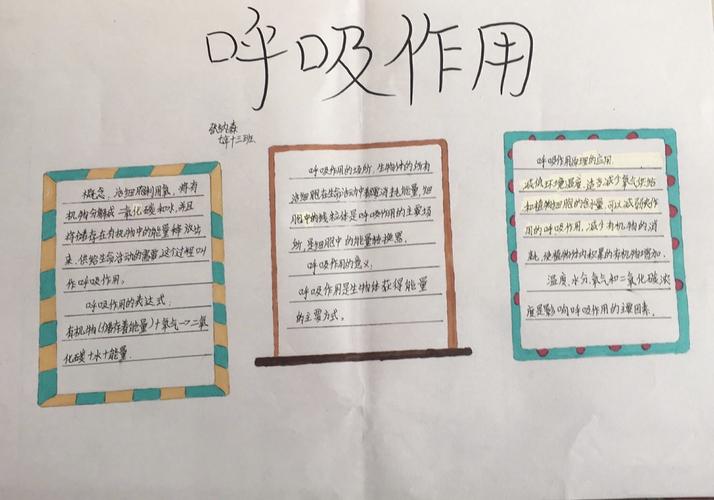 呼吸作用
张纳森
七年十三班
概念：活细胞利用氧，将有
机物分解成二氧化碳和水，并且
将储存在有机物中的能量释放出
来，供给生命活动的需要，这个过程叫
作呼吸作用。
呼吸作用的表达式：
有机物(储存着能量)+氧气→二氧
化碳+水+能量
呼吸作用的场所，生物体的所有
活细胞在生命活动中都要消耗能量，细
胞中的线粒体是呼吸作用的主要场
所，是细胞中的能量转换器。
呼吸作用的意义：
呼吸作用是生物体获得能量
的主要方式。
呼吸作用原理的应用
减低环境温度，适当减少氧气供给
和植物细胞的含水量，可以减弱夜作
用的呼吸作用，减少有机物的消
耗，使植物体内积累的有机物增加。
温度、水分、氧气和二氧化碳浓
度是影响呼吸作用的主要因素。